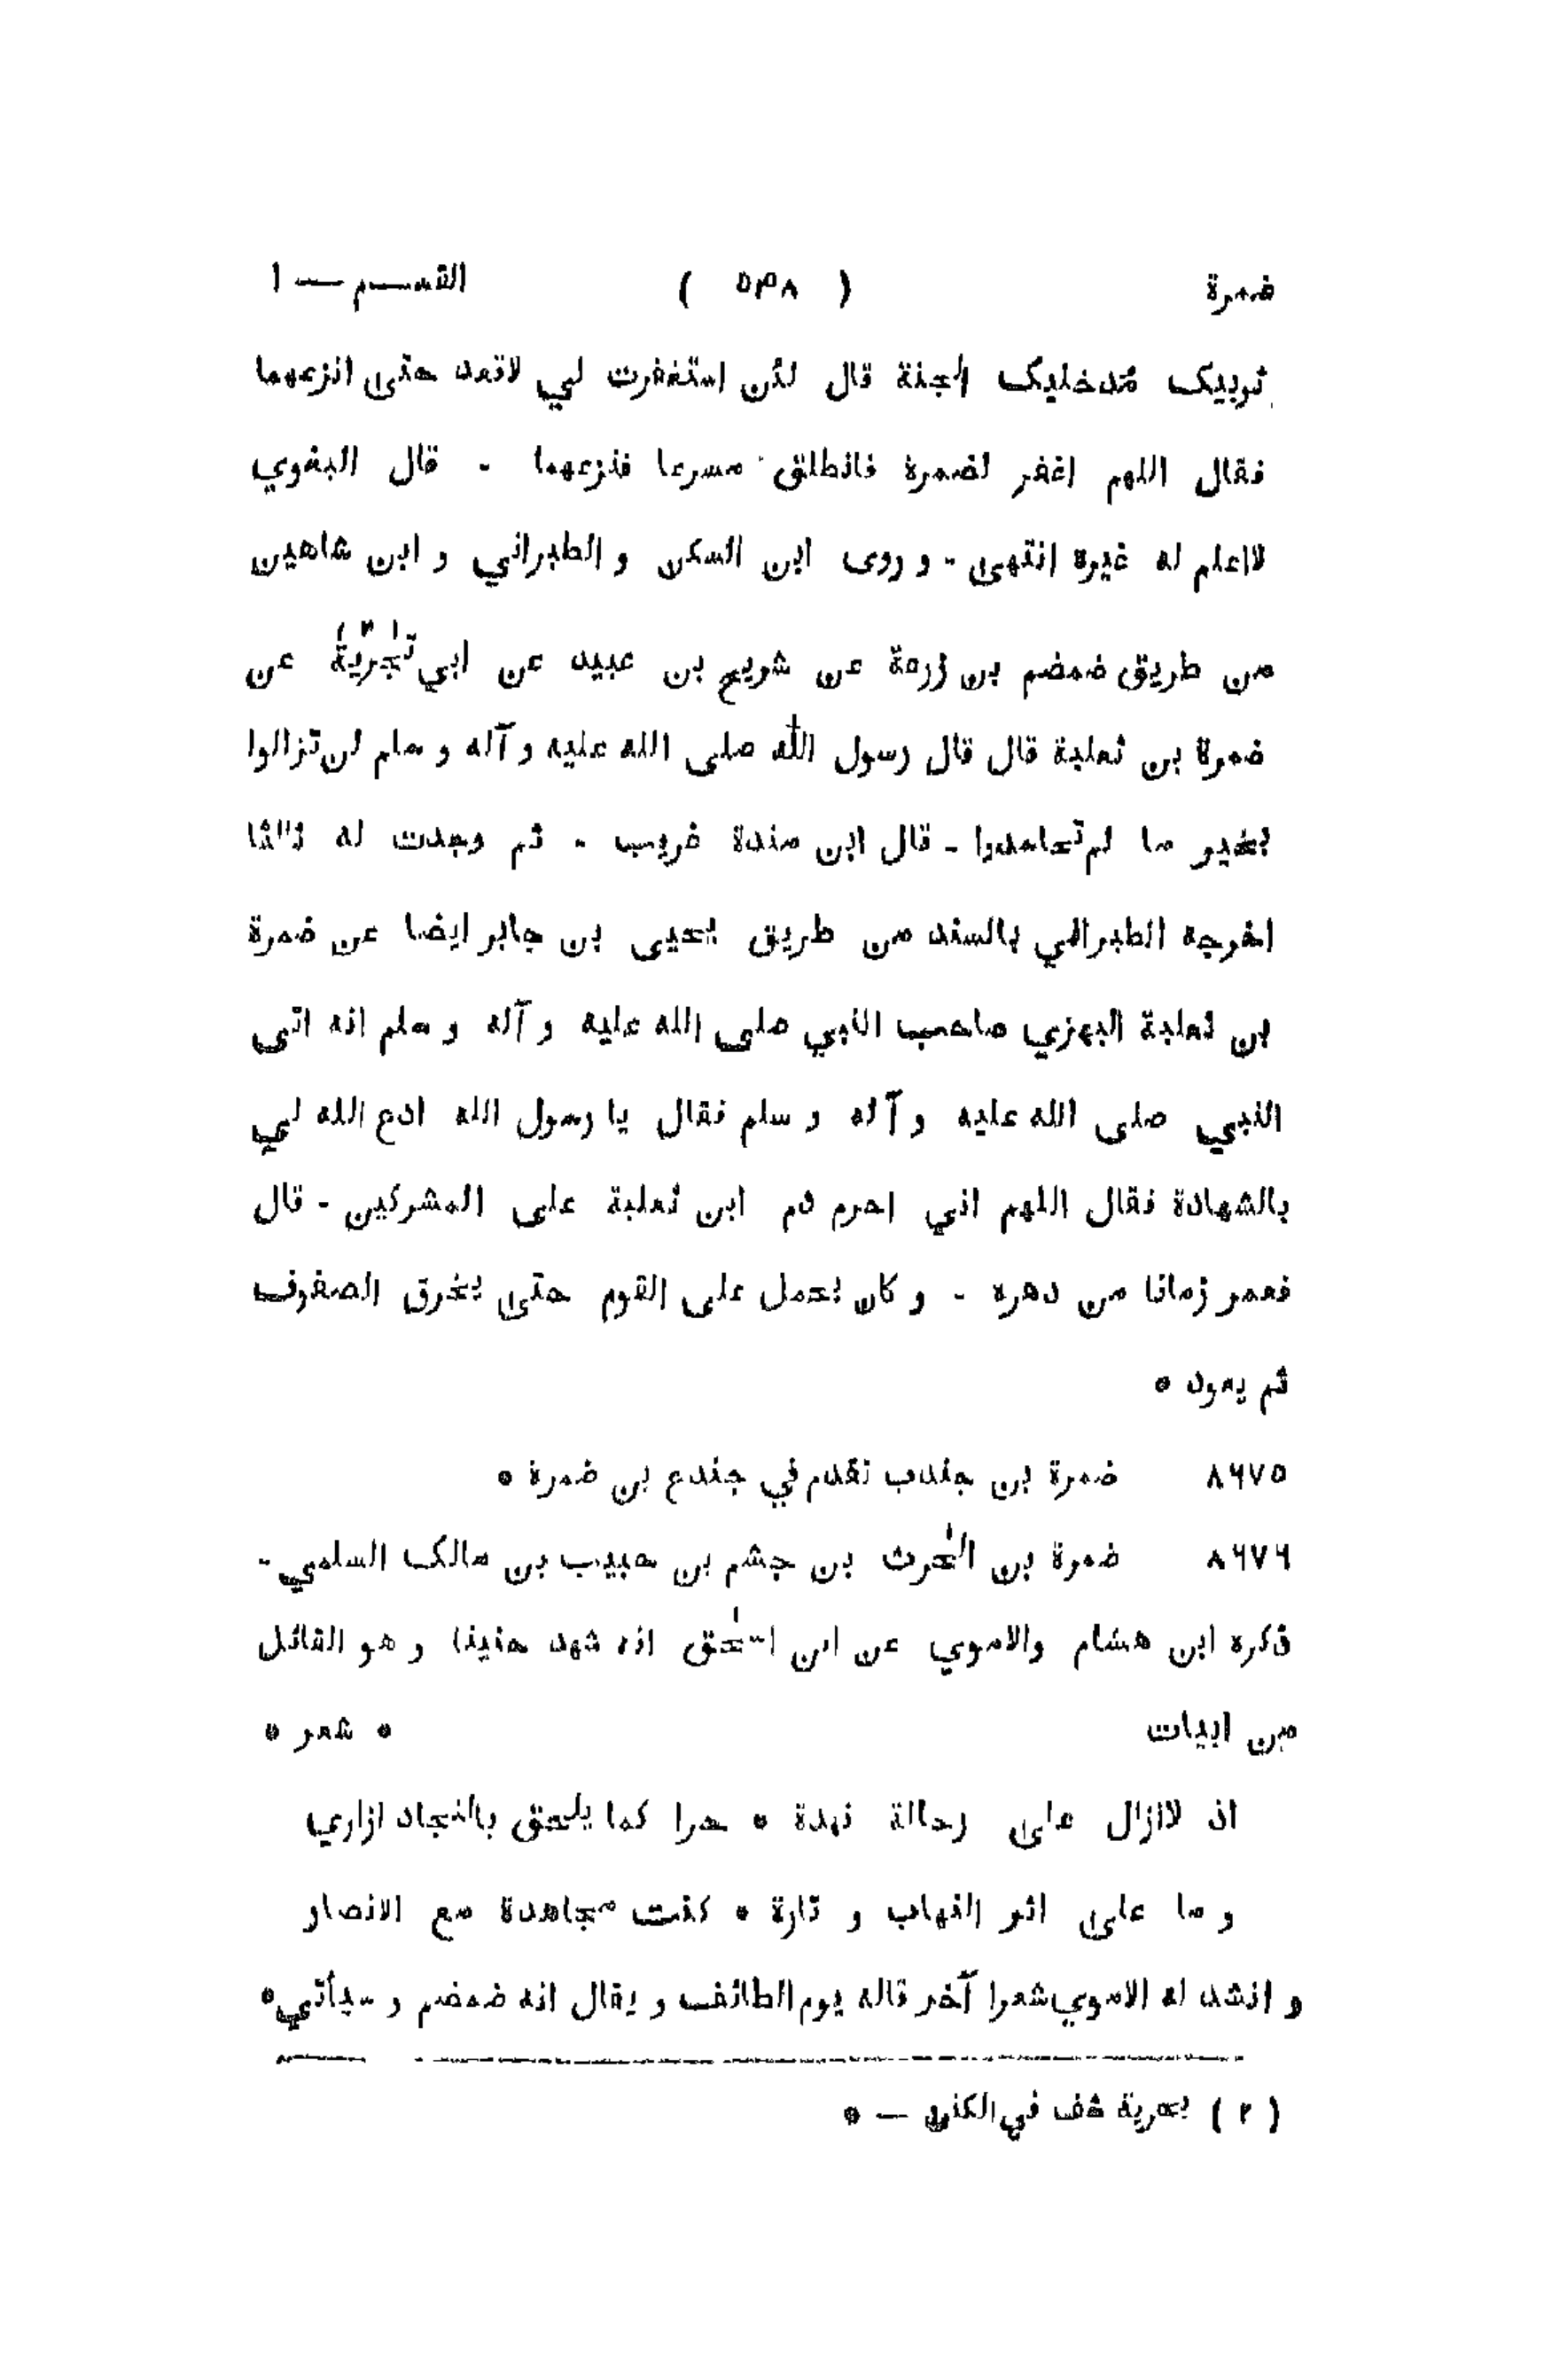 ضمرة ( ٥٣٨ ) القسم — ١
ثوبيك مدخليك الجنة قال لئن استغفرت لي لاقعد حتى انزعهما
فقال اللهم اغفر لضمرة فانطلق مسرعا فنزعهما - قال البغوي
لااعلم له غيره انتهى - و روى ابن السكن و الطبراني و ابن شاهين
من طريق ضمضم بن زرعة عن شريح بن عبيد عن ابي عن
ضمرة بن ثعلبة قال قال رسول الله صلى الله عليه و آله و سلم لن تزالوا
بخير ما لم تحاسدوا - قال ابن مندة غريب - ثم وجدت له ثالثا
اخرجه الطبراني بالسند من طريق يحيى بن جابر ايضا عن ضمرة
بن ثعلبة البهزي صاحب النبي صلى الله عليه و آله و سلم انه اتى
النبي صلى الله عليه و آله و سلم فقال يا رسول الله ادع الله لي
بالشهادة فقال اللهم اني احرم دم ابن ثعلبة على المشركين - قال
فعمر زمانا من دهره - و كان يحمل على القوم حتى يخرق الصفوف
ثم يعود *
٨٦٧٥ ضمرة بن جندب تقدم في جندع بن ضمرة *
٨٦٧٦ ضمرة بن الحٰرث بن جشم بن حبيب بن مالك السلمي -
ذكره ابن هشام والاموي عن ابن اسحٰق انه شهد حنينا و هو القائل
من ابيات * شعر *
اذ لاازال على رحالة نهدة * حرا كما يلحق بالنجاد ازاري
و ما على اثر النهاب و تارة * كنت مجاهدة مع الانصار
و انشد له الاموي شعرا آخر قاله يوم الطائف و يقال انه ضمضم و سيأتي *
( ٢ ) بحرية شف في الكنى — *